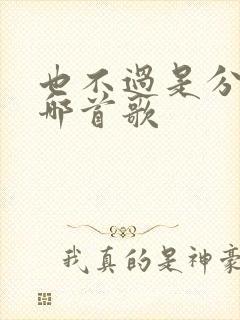 也不过是分
哪首歌
我真的是神豪